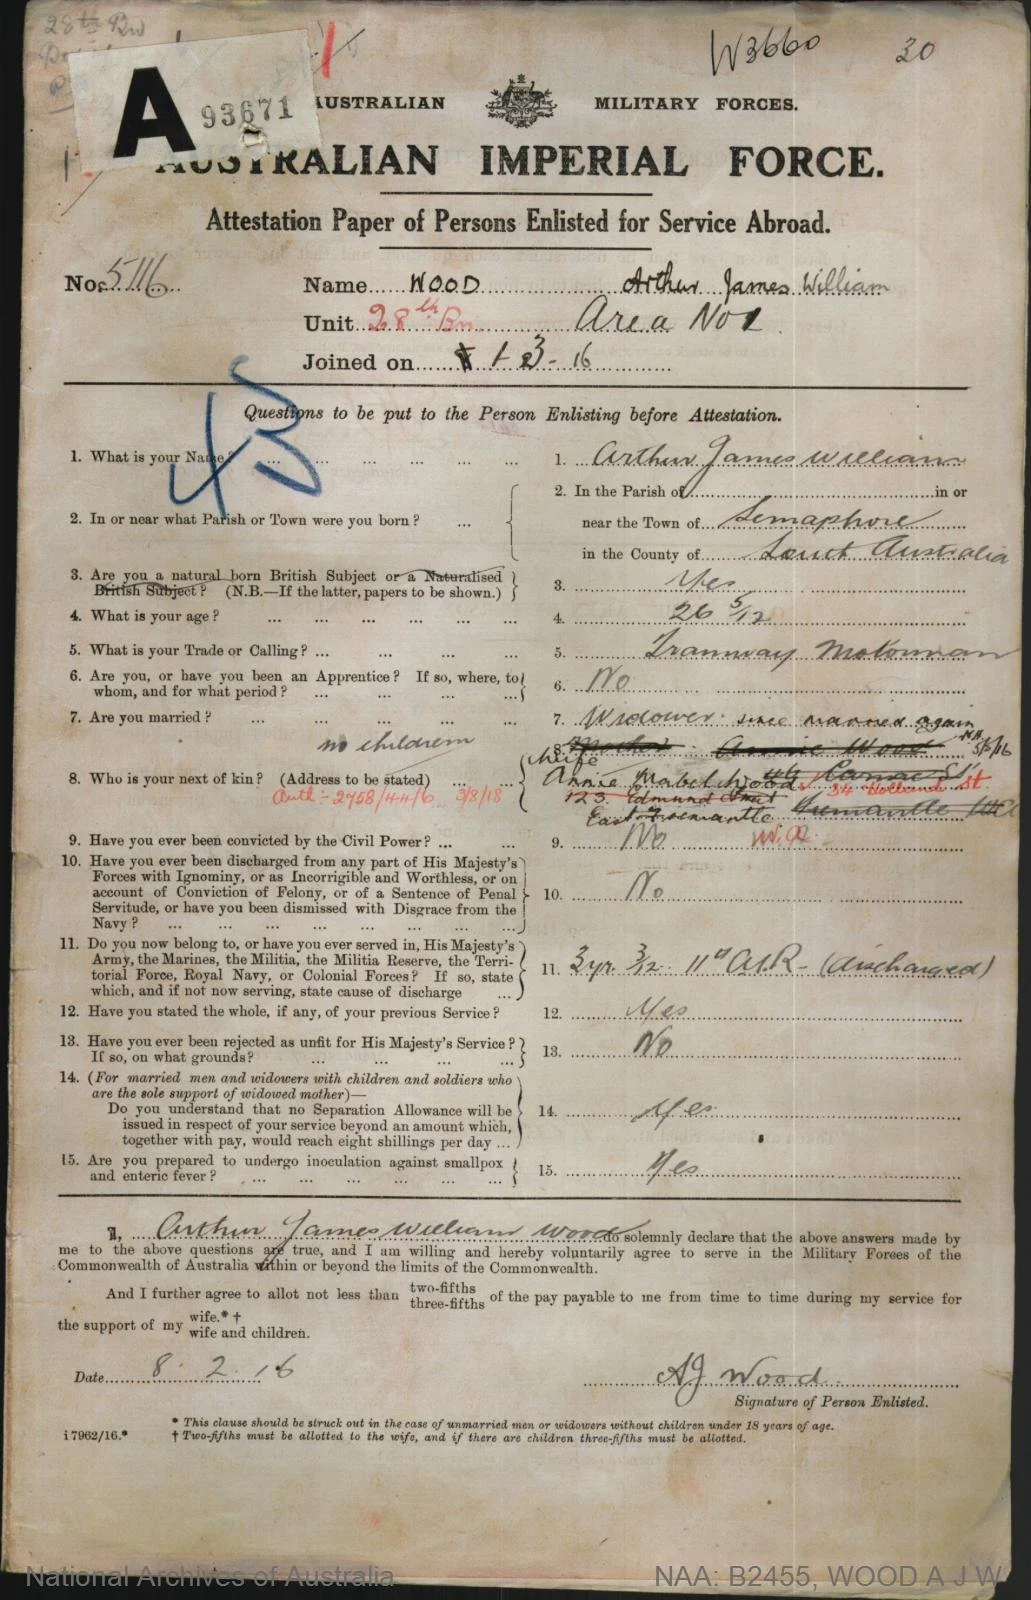 28th Bn
W3660
30
A
93671
AUSTRALIAN MILITARY FORCES.
AUSTRALIAN IMPERIAL FORCE.
Attestation Paper of Persons Enlisted for Service Abroad.
No. 5116
Name WOOD Arthur James William
Unit 28th Bn. Area No 1
Joined on 1 3 - 16
Questions to be put to the Person Enlisting before Attestation.
1. What is your Name? ... ... ... ... ... 1. Arthur James William
2. In or near what Parish or Town were you born? ... 2. In the Parish of in or
near the Town of Semaphore
in the County of South Australia
3. Are you a natural born British Subject or a Naturalised
British Subject? (N.B.—If the latter, papers to be shown.) 3. Yes
4. What is your age? ... ... ... ... ... ... 4. 26 5/12
5. What is your Trade or Calling? ... ... ... ... 5. Tramway Motorman
6. Are you, or have you been an Apprentice? If so, where, to
whom, and for what period? ... ... ... ... 6. No
7. Are you married? ... ... ... ... 7. Widower. since married again
no children
Mother Annie Wood 5/5/16
8. Who is your next of kin? (Address to be stated) ... 8. (Wife
Annie Mabel Wood Carnac St
Auth:- 2758/44/6 3/8/18
123 Edmund Street 34 Holland St
East Fremantle Fremantle WA
9. Have you ever been convicted by the Civil Power? ... ... 9. No W.A.
10. Have you ever been discharged from any part of His Majesty's
Forces with Ignominy, or as Incorrigible and Worthless, or on
account of Conviction of Felony, or of a Sentence of Penal
Servitude, or have you been dismissed with Disgrace from the
Navy? ... ... ... ... ... ... ... 10. No
11. Do you now belong to, or have you ever served in, His Majesty's
Army, the Marines, the Militia, the Militia Reserve, the Terri-
torial Force, Royal Navy, or Colonial Forces? If so, state
which, and if not now serving, state cause of discharge ... 11. 3 yr. 3/12. 11th A.I.R - (discharged)
12. Have you stated the whole, if any, of your previous Service? 12. Yes
13. Have you ever been rejected as unfit for His Majesty's Service?
If so, on what grounds? ... ... ... ... 13. No
14. (For married men and widowers with children and soldiers who
are the sole support of widowed mother)—
Do you understand that no Separation Allowance will be
issued in respect of your service beyond an amount which,
together with pay, would reach eight shillings per day ... 14. Yes
15. Are you prepared to undergo inoculation against smallpox
and enteric fever? ... ... ... ... ... ... 15. Yes
I, Arthur James William Wood do solemnly declare that the above answers made by
me to the above questions are true, and I am willing and hereby voluntarily agree to serve in the Military Forces of the
Commonwealth of Australia within or beyond the limits of the Commonwealth.
And I further agree to allot not less than two-fifths
three-fifths of the pay payable to me from time to time during my service for
the support of my wife.* †
wife and children.
Date 8. 2. 16
AJ Wood
Signature of Person Enlisted.
* This clause should be struck out in the case of unmarried men or widowers without children under 18 years of age.
i 7962/16.* † Two-fifths must be allotted to the wife, and if there are children three-fifths must be allotted.
National Archives of Australia
NAA: B2455, WOOD A J W